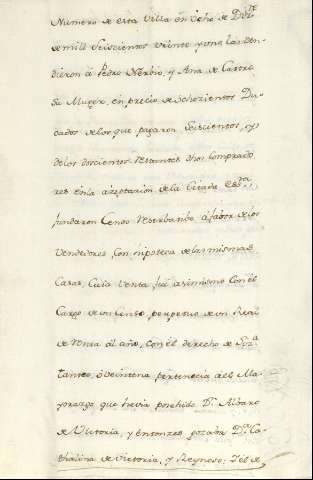 Numero de esta Villa en ocho de Dizre
de mill Seiscientos veinte y uno las ven-
dieron â Pedro Nerbio, y Ana de Castro
Su Muger, en precio de ochozientos Du-
cados de los que pagaron Seiscientos, y
de los doscientos restantes dhos comprado
res en la azeptacion de la Citada essra,
fundaron Censo reserbatibo a fabor de los
Vendedores, con hipoteca de las mismas
Casas, Cuia Venta fue asimismo con el
Cargo de un Censo perpetuo de un Real
de renta al año, con el derecho de
tanteo, ô veintena perteneciâ al Ma-
yorazgo que havia posehido Dn Alvaro
de Victoria, y entonzes gozaba Da Ca-
thalina de Victoria, y Reynoso,